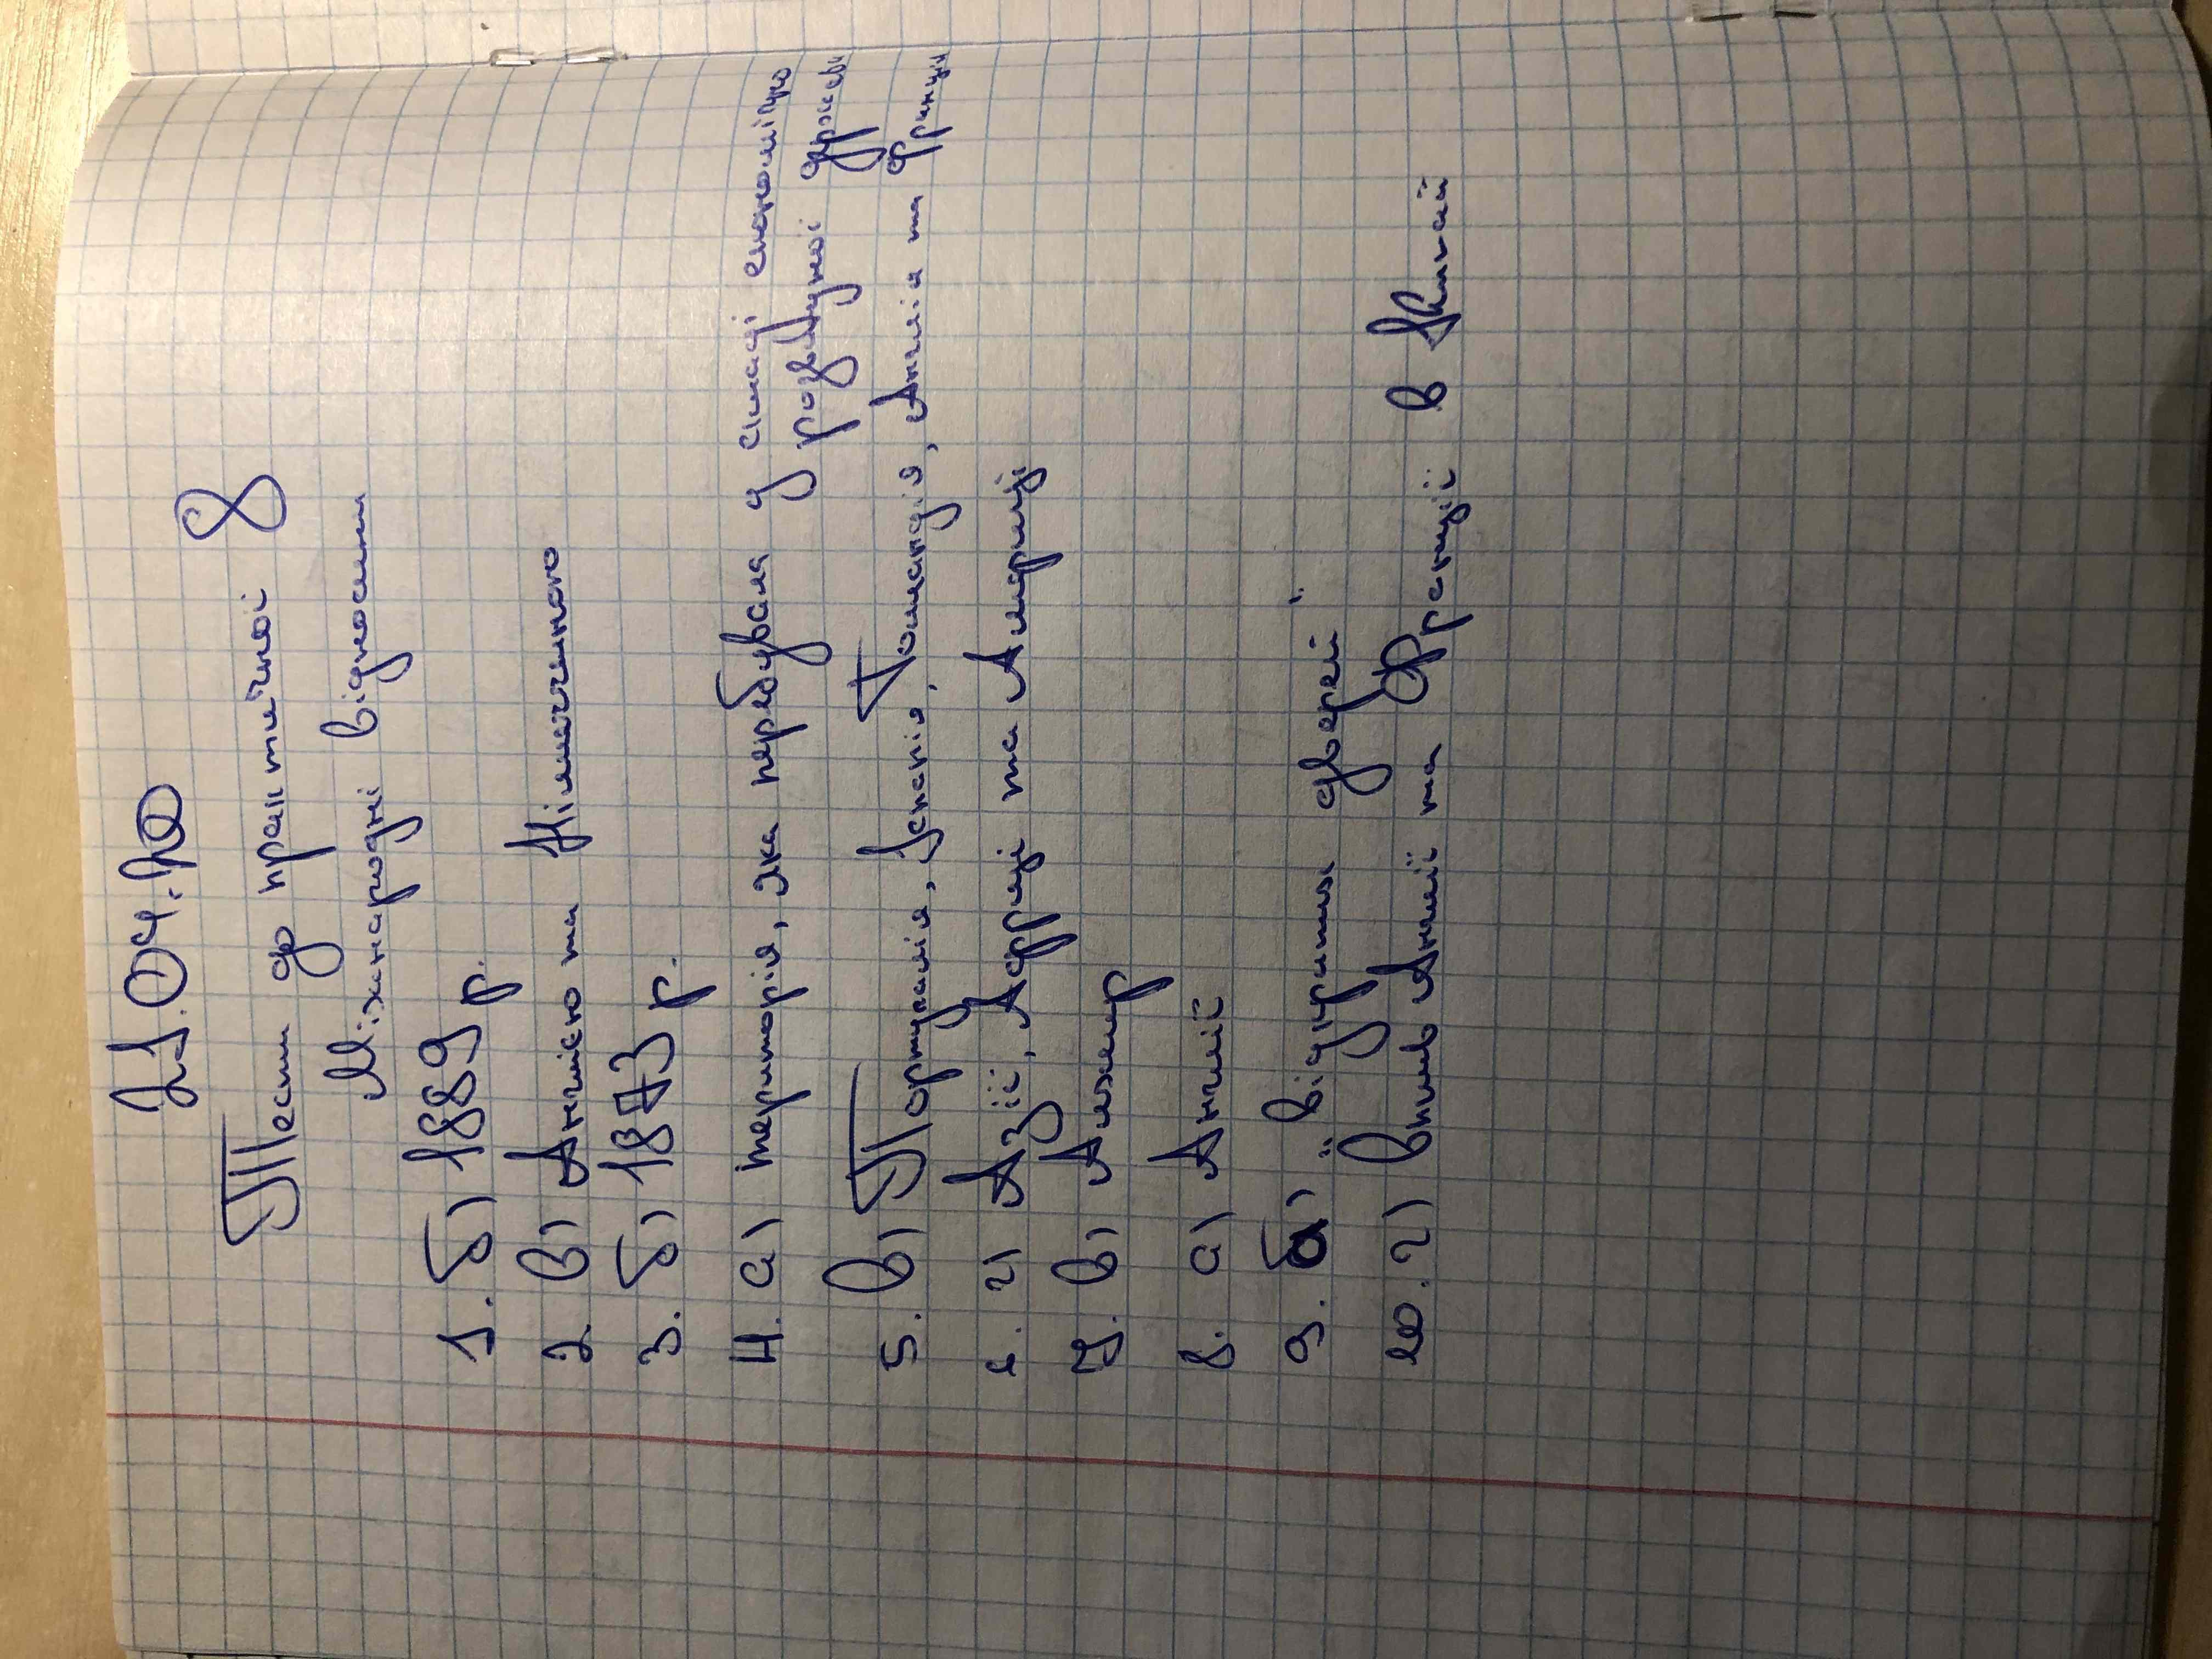 21.04.20
Тест до практичної 8
Міжнародні відносини
1. б) 1889 р.
2. в) Англією та Німеччиною
3. б) 1873 р.
4. а) територія, яка перебувала у владі економічно
розвинутої держави
5. в) Португалія, Іспанія, Голландія, Англія та Франція
6. г) Азії, Африці та Америці
7. в) Алжир
8. а) Англії
9. б) "відкритих дверей"
10. г) вплив Англії та Франції в Китай